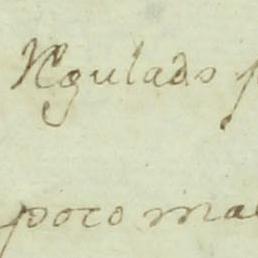 Regulado p
poco ma